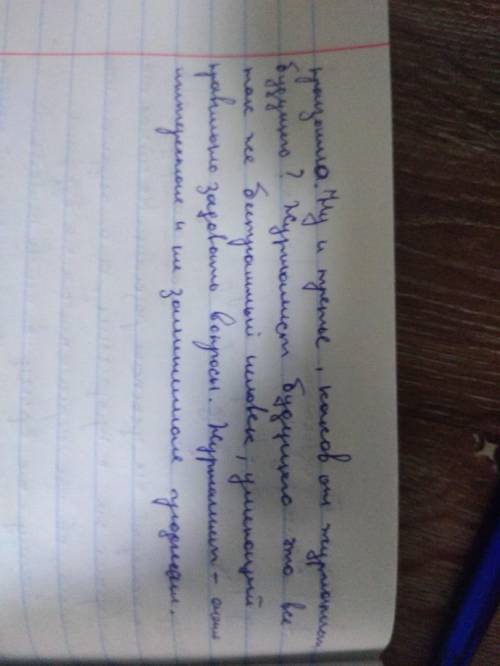 произошло. Ну и третье, каков он журналист
будущего? Журналист будущего это все
так же бесстрашный человек, умеющий
правильно задавать вопросы. Журналист – очень
интересная и не заменимая профессия.